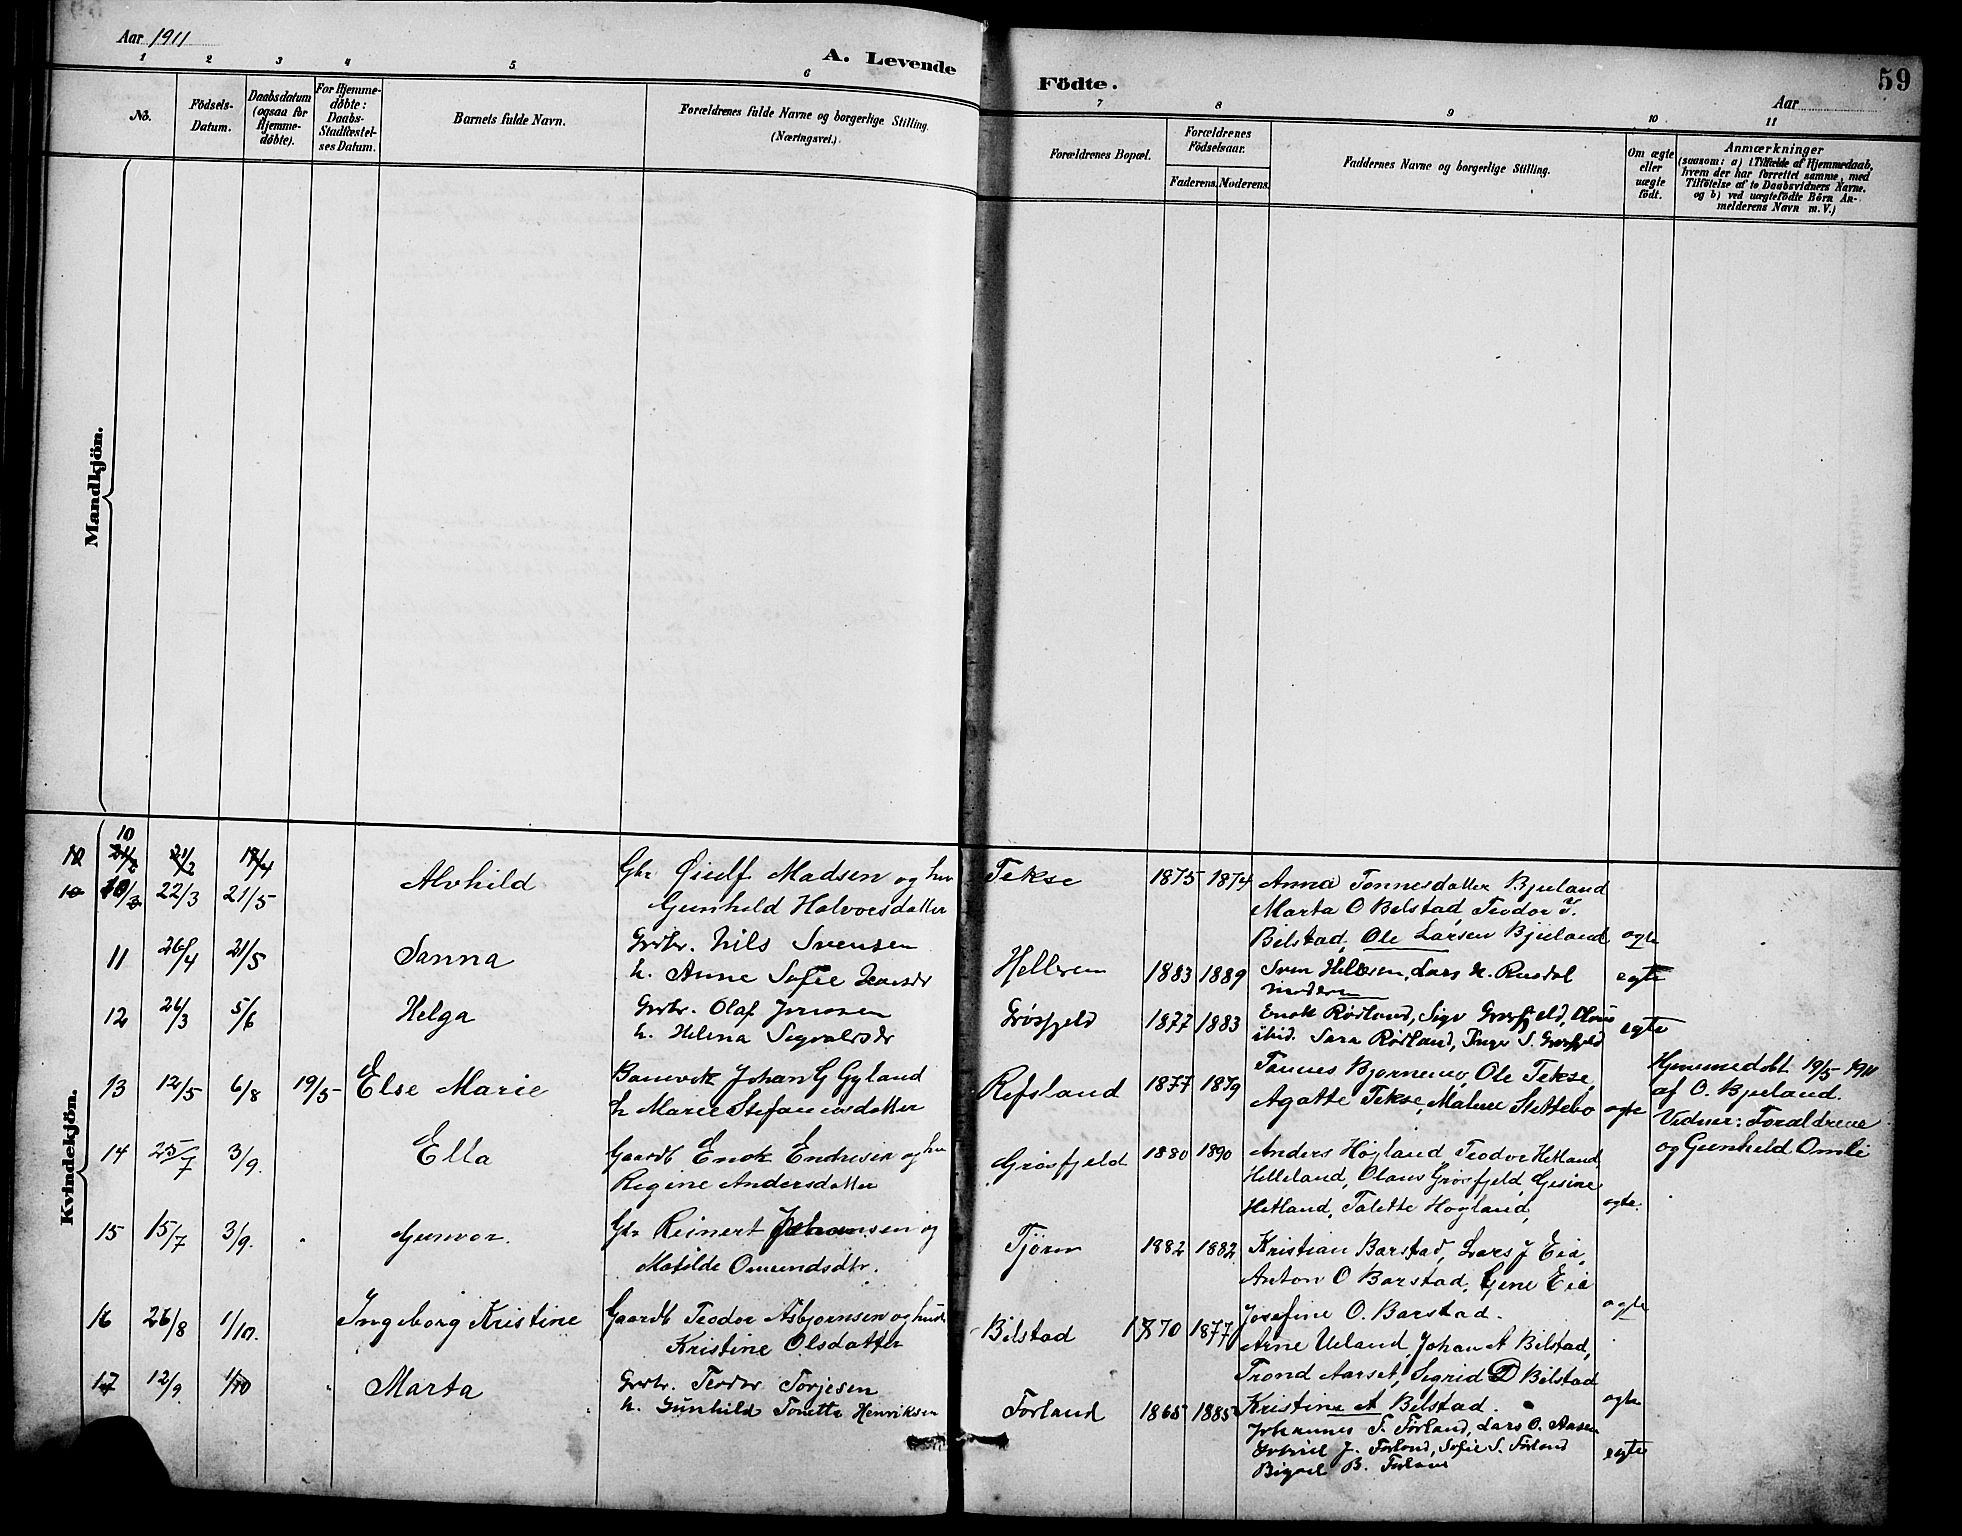 Aar 1911
A. Levende
Födte.
Aar
59
1 2 3 4 5 6 7 8 9 10 11
No.
Födsels-
Datum.
Daabsdatum
(ogsaa for
Hjemme-
døbte).
For Hjemme-
døbte:
Daabs-
Stadfæstel-
ses Datum.
Barnets fulde Navn.
Forældrenes fulde Navne og borgerlige Stilling.
(Næringsvei.)
Forældrenes Bopæl.
Forældrenes
Födselsaar.
Faderens. Moderens.
Faddernes Navne og borgerlige Stilling.
Om ægte
eller
uægte
født.
Anmærkninger
(saasom: a) i Tilfælde af Hjemmedaab,
hvem der har forrettet samme, med
Tilføielse af to Daabsvidners Navne,
og b) ved uægtefødte Börn An-
melderens Navn m. V.)
Mandkjön.
Kvindekjön.
10
22/3 21/5 Alvhild
Gbr Øiulf Madsen og hu
Gunhild Halvorsdatter
Tekse 1875 1874
Anna Tonnesdatter Bjuland
Marta O Bilstad, Teodor T.
Bilstad, Ole Larsen Bjuland ægte
11 26/4 21/5 Sanna
Grbr. Nils Svensen
h. Anne Sofie
Helleren 1883 1889
Sven Helleren, Lars N. Rusdal
moderen
egte
12 26/3 5/6 Helga
Grbr. Olaf Jonassen
h. Helena Sigvaldsdr
Grøsfjeld 1877 1883
Enok Rødland, Sigv Grøsfjeld, Olaus
ibid. Sara Rødland, Inga S. Grøsfjeld
egte
13 12/5 6/8 19/5 Else Marie
Banevokt Johan G Gyland
h Marie Stefanusdatter
Refsland 1877 1879
Tonnes Bjornemo, Ole Tekse,
Agatte Tekse, Malene Slettebo ægte
Hjemmedobt 19/5 1911
af O. Bjuland.
Vidner: Foraldrene
og Gunhild Omli
14 25/7 3/9. Ella
Gaardb Enok Endresen og hu
Regine Andersdatter
Grøsfjeld 1880 1890
Anders Høgland Teodor Hetland,
Helleland, Olaus Grøsfjeld, Gesine
Hetland, Talette Hogland, ægte.
15 15/7 3/9. Gunvor.
Gbr Reinert Johansen og
Matilde Omundsdtr.
Tjørn 1882 1882
Kristian Barstad, Lars J Eia,
Anton O Barstad, Gine Eia
Josefine O. Barstad. ægte
16 26/8 1/10. Ingeborg Kristine
Gaardb Teodor Asbjornsen og hustr
Kristine Olsdatter
Bilstad 1870 1877
Arne Ueland, Johan A Bilstad,
Trond Aarset, Sigrid D Bilstad
Kristine A Bilstad. ægte
17 12/9. 1/10 Marta
Grbr. Teodor Torjesen
h. Gunhild Tonette Henriksen
Førland 1865 1885
Johannes T. Førland, Lars O. Aasen
Gabriel J. Førland, Sofie S. Førland
B. Førland
egte